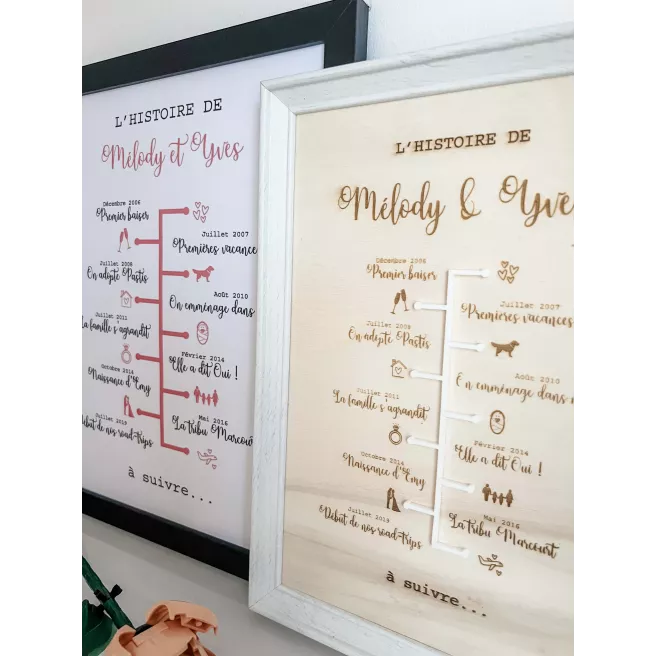 L'HISTOIRE DE
Mélody et Yves
Décembre 2006
Premier baiser
Juillet 2007
Premières vacances
Juillet 2008
On adopte Pastis
Août 2010
On emménage dans
Juillet 2011
La famille s'agrandit
Février 2014
Elle a dit Oui !
Octobre 2014
Naissance d'Emy
Mai 2016
La tribu Marcourt
Juillet 2019
Début de nos road-trips
à suivre...
L'HISTOIRE DE
Mélody & Yves
Décembre 2006
Premier baiser
Juillet 2007
Premières vacances
Juillet 2008
On adopte Pastis
Août 2010
On emménage dans
Juillet 2011
La famille s'agrandit
Février 2014
Elle a dit Oui !
Octobre 2014
Naissance d'Emy
Mai 2016
La tribu Marcourt
Juillet 2019
Début de nos road-trips
à suivre...